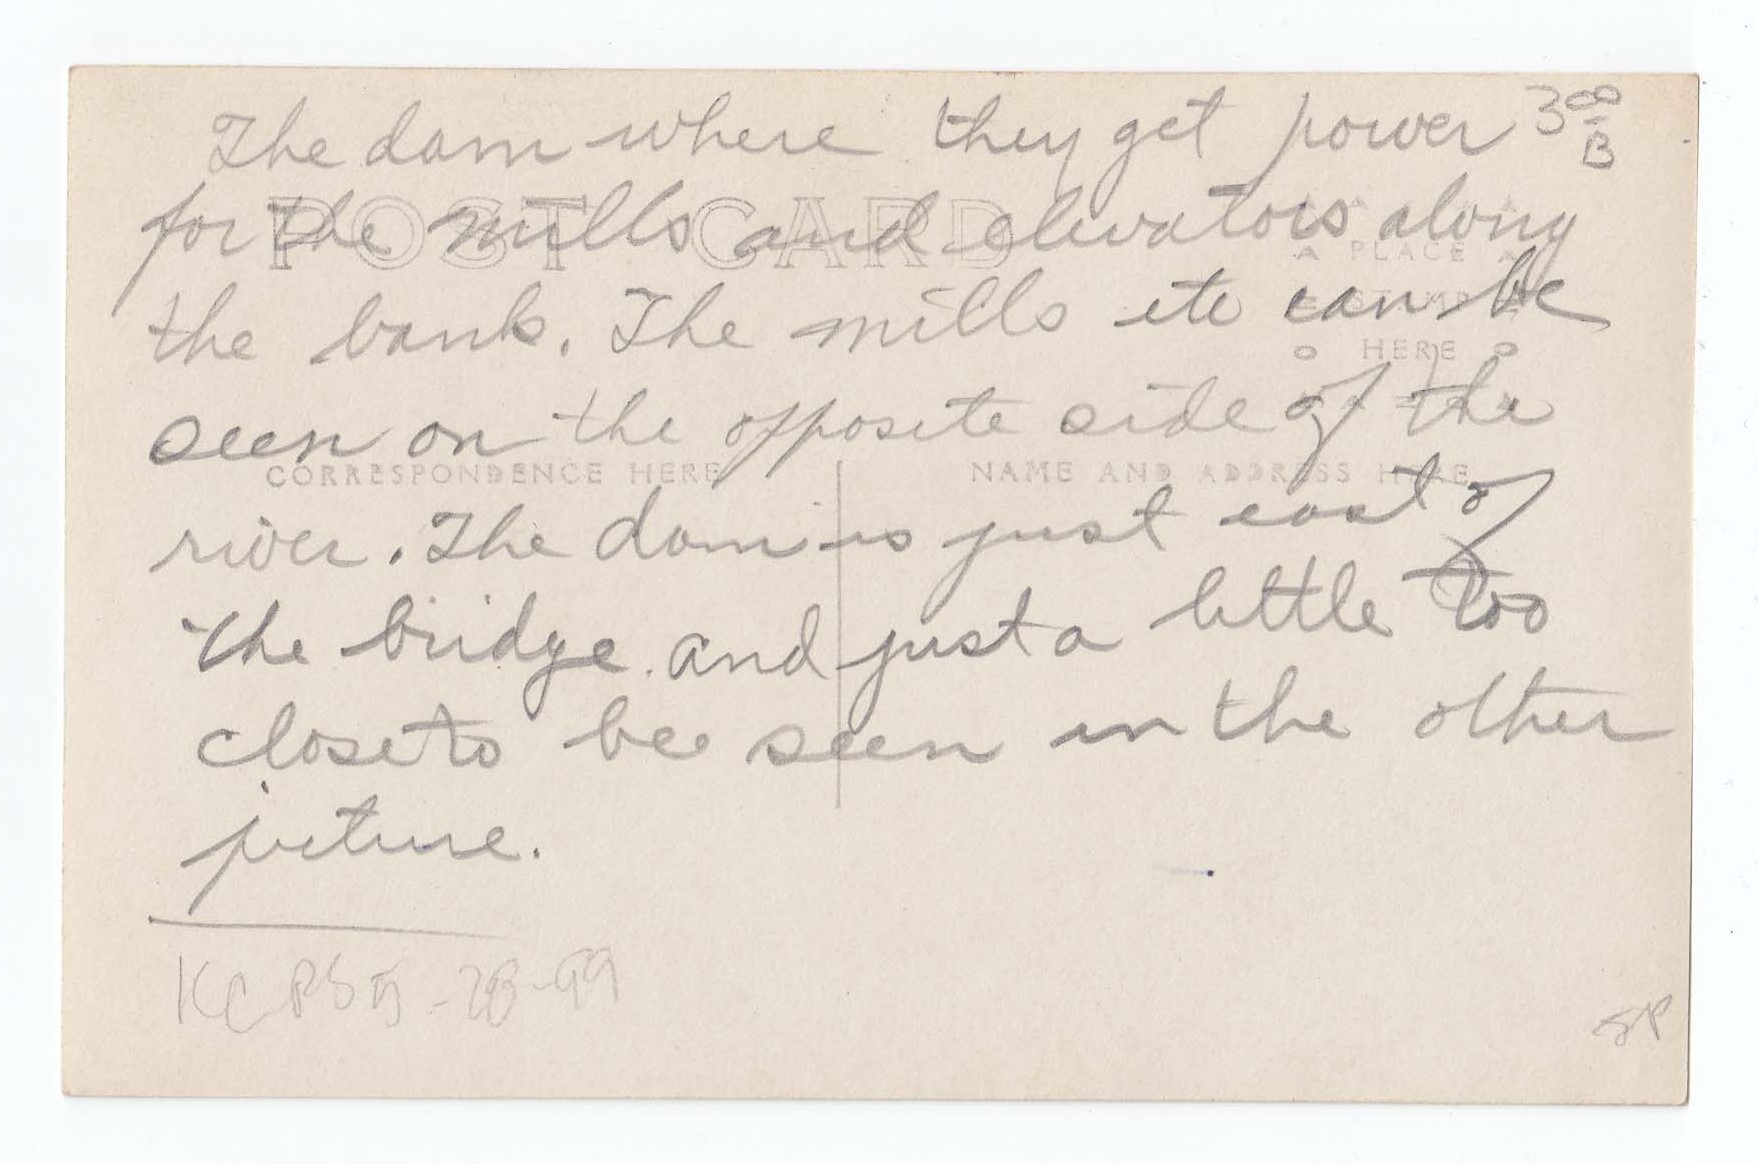 The dam where they get power 3 00
B
for the mills and elevators along
POST CARD
PLACE
the bank. The mills etc can be
STAMP
HERE
seen on the opposite side of the
CORRESPONDENCE HERE
NAME AND ADDRESS HERE
river. The dam is just east of
the bridge and just a little too
close to be seen in the other
picture.
KCPS 5-28-99